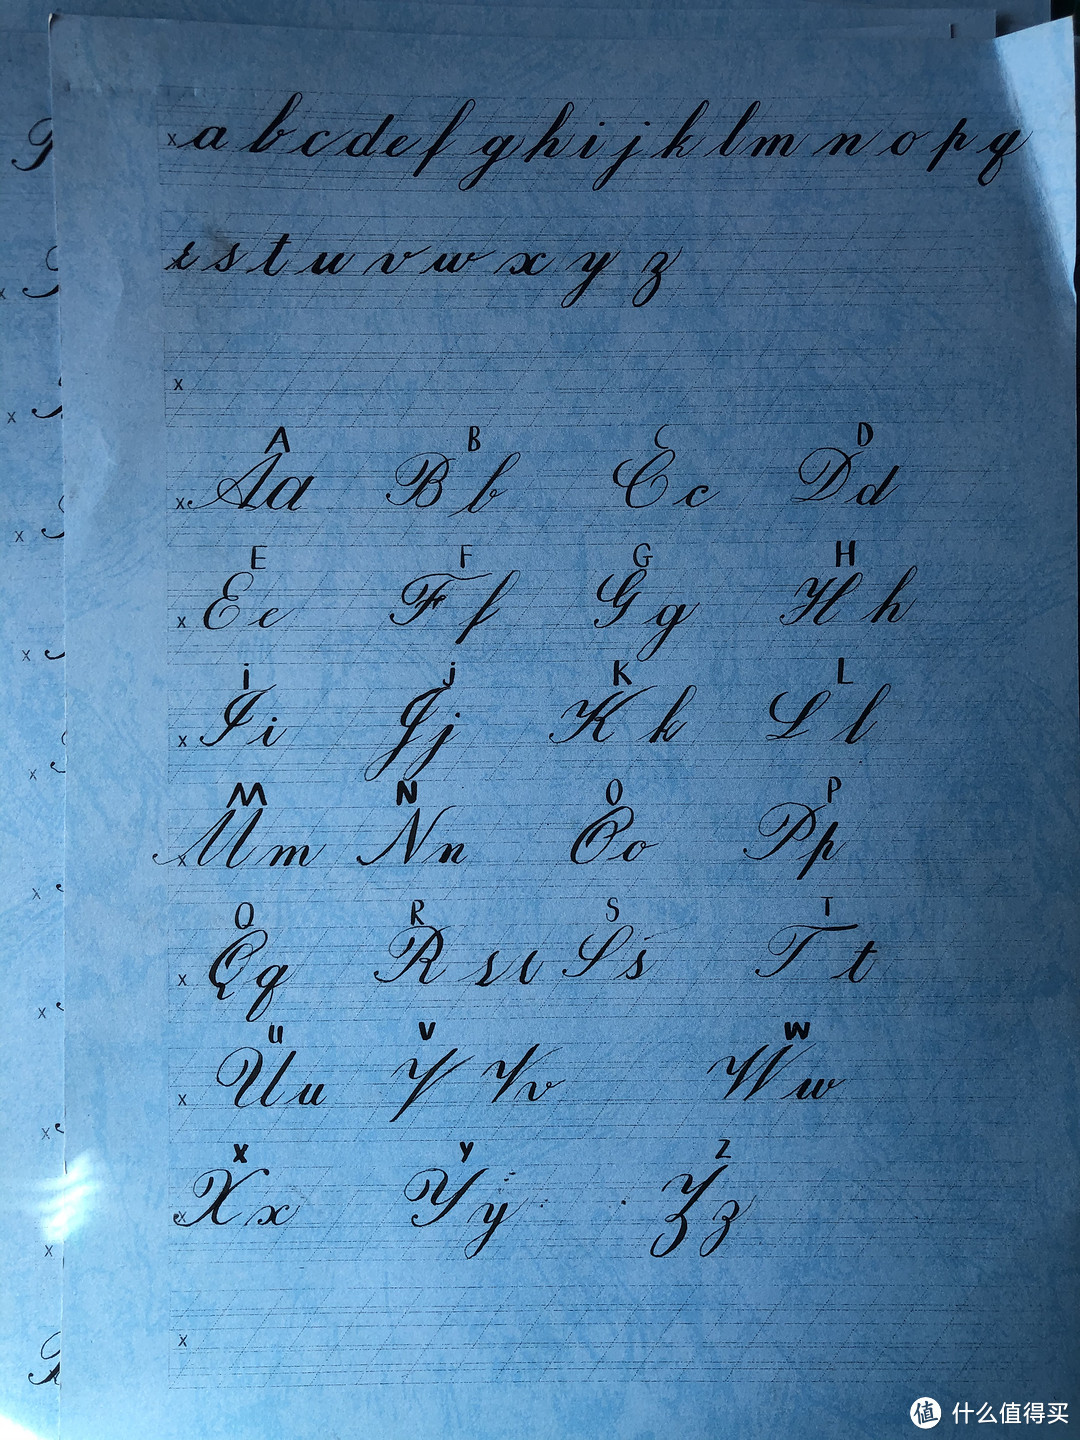 x a b c d e f g h i j k l m n o p q
r s t u v w x y z
x
A B C D
x Aa Bb Cc Dd
E F G H
x Ee Ff Gg Hh
i j K L
x Ii Jj Kk Ll
M N O P
x Mm Nn Oo Pp
Q R S T
x Qq R r r Ss Tt
u V W
x Uu V Vv Ww
X Y Z
x Xx Yy Zz
x
值 什么值得买